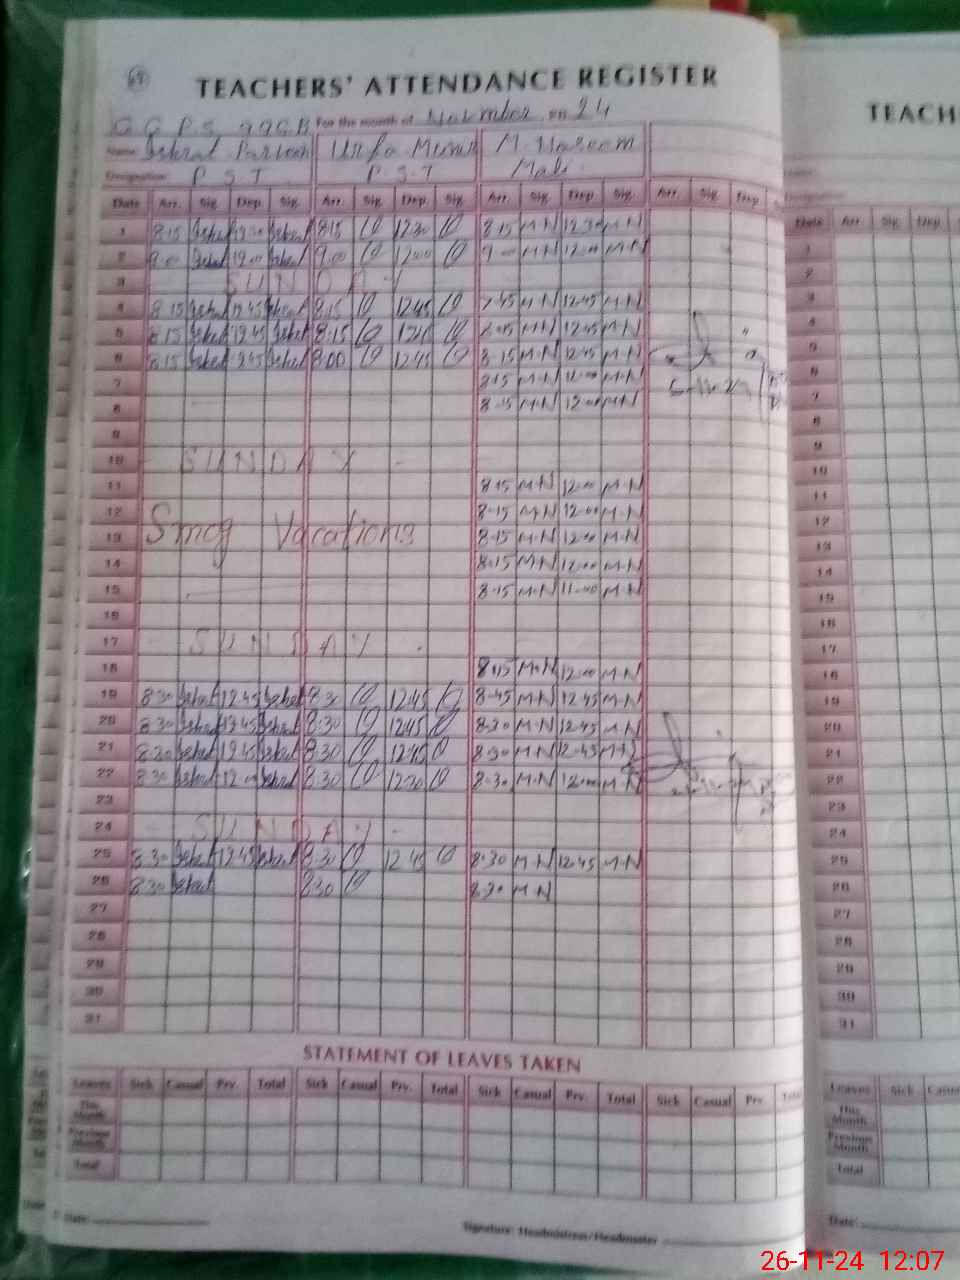 68
TEACHERS' ATTENDANCE REGISTER
TEACH
G G P.S 99GB For the month of November on 24
Name Ishrat Parveen M. Naseem
Designation P S T P.S.T Mali
Date Arr. Sig. Dep. Sig. Arr. Sig. Dep. Sig. Arr. Sig. Dep. Sig. Arr. Sig. Dep. Date Arr. Sig. Dep.
1 8-15 8:15 12:30 8-15 M-N 12-30 M-N 1
2 9.00 12.00 9.00 12:00 M-N 12-00 M-N 2
3 SUNDAY 3
4 8 15 12.45 8:15 12:45 M-N 12-45 M-N 4
5 8 15 12 45 8:15 M-N 12-45 M-N 5
6 8-15 12 45 8:00 12:45 8-15 M-N 12-45 M-N 6
7 8-15 M-N 12-00 M-N 7
8 8-15 M-N 12-00 M-N 8
9 9
10 SUNDAY 10
11 8-15 M-N 12-00 M-N 11
12 8-15 M-N 12-00 M-N 12
13 Smog Vacations 8-15 M-N 12-00 M-N 13
14 8-15 M-N 12-00 M-N 14
15 8-15 M-N 11-00 M-N 15
16 16
17 SUNDAY 17
18 8-15 M-N 12-00 M-N 18
19 8-30 12-45 8:30 12:45 8-45 M-N 12-45 M-N 19
20 8-30 12-45 8:30 12:45 8-30 M-N 12-45 M-N 20
21 8-30 12 45 8:30 12:45 8-30 M-N 12-45 M-N 21
22 8-30 12-00 8:30 12:30 8-30 M-N 12-00 M-N 22
23 23
24 SUNDAY 24
25 8-30 12 45 8:30 12 45 8-30 M-N 12-45 M-N 25
26 8-30 8:30 8-30 M-N 26
27 27
28 28
29 29
30 30
31 31
STATEMENT OF LEAVES TAKEN
Leaves Sick Casual Prv. Total Sick Casual Prv. Total Sick Casual Prv. Total Sick Casual Prv. Total Leaves Sick Casual
This Month This Month
Previous Month Previous Month
Total Total
Date: Signature: Headmistress/Headmaster Date:
26-11-24 12:07